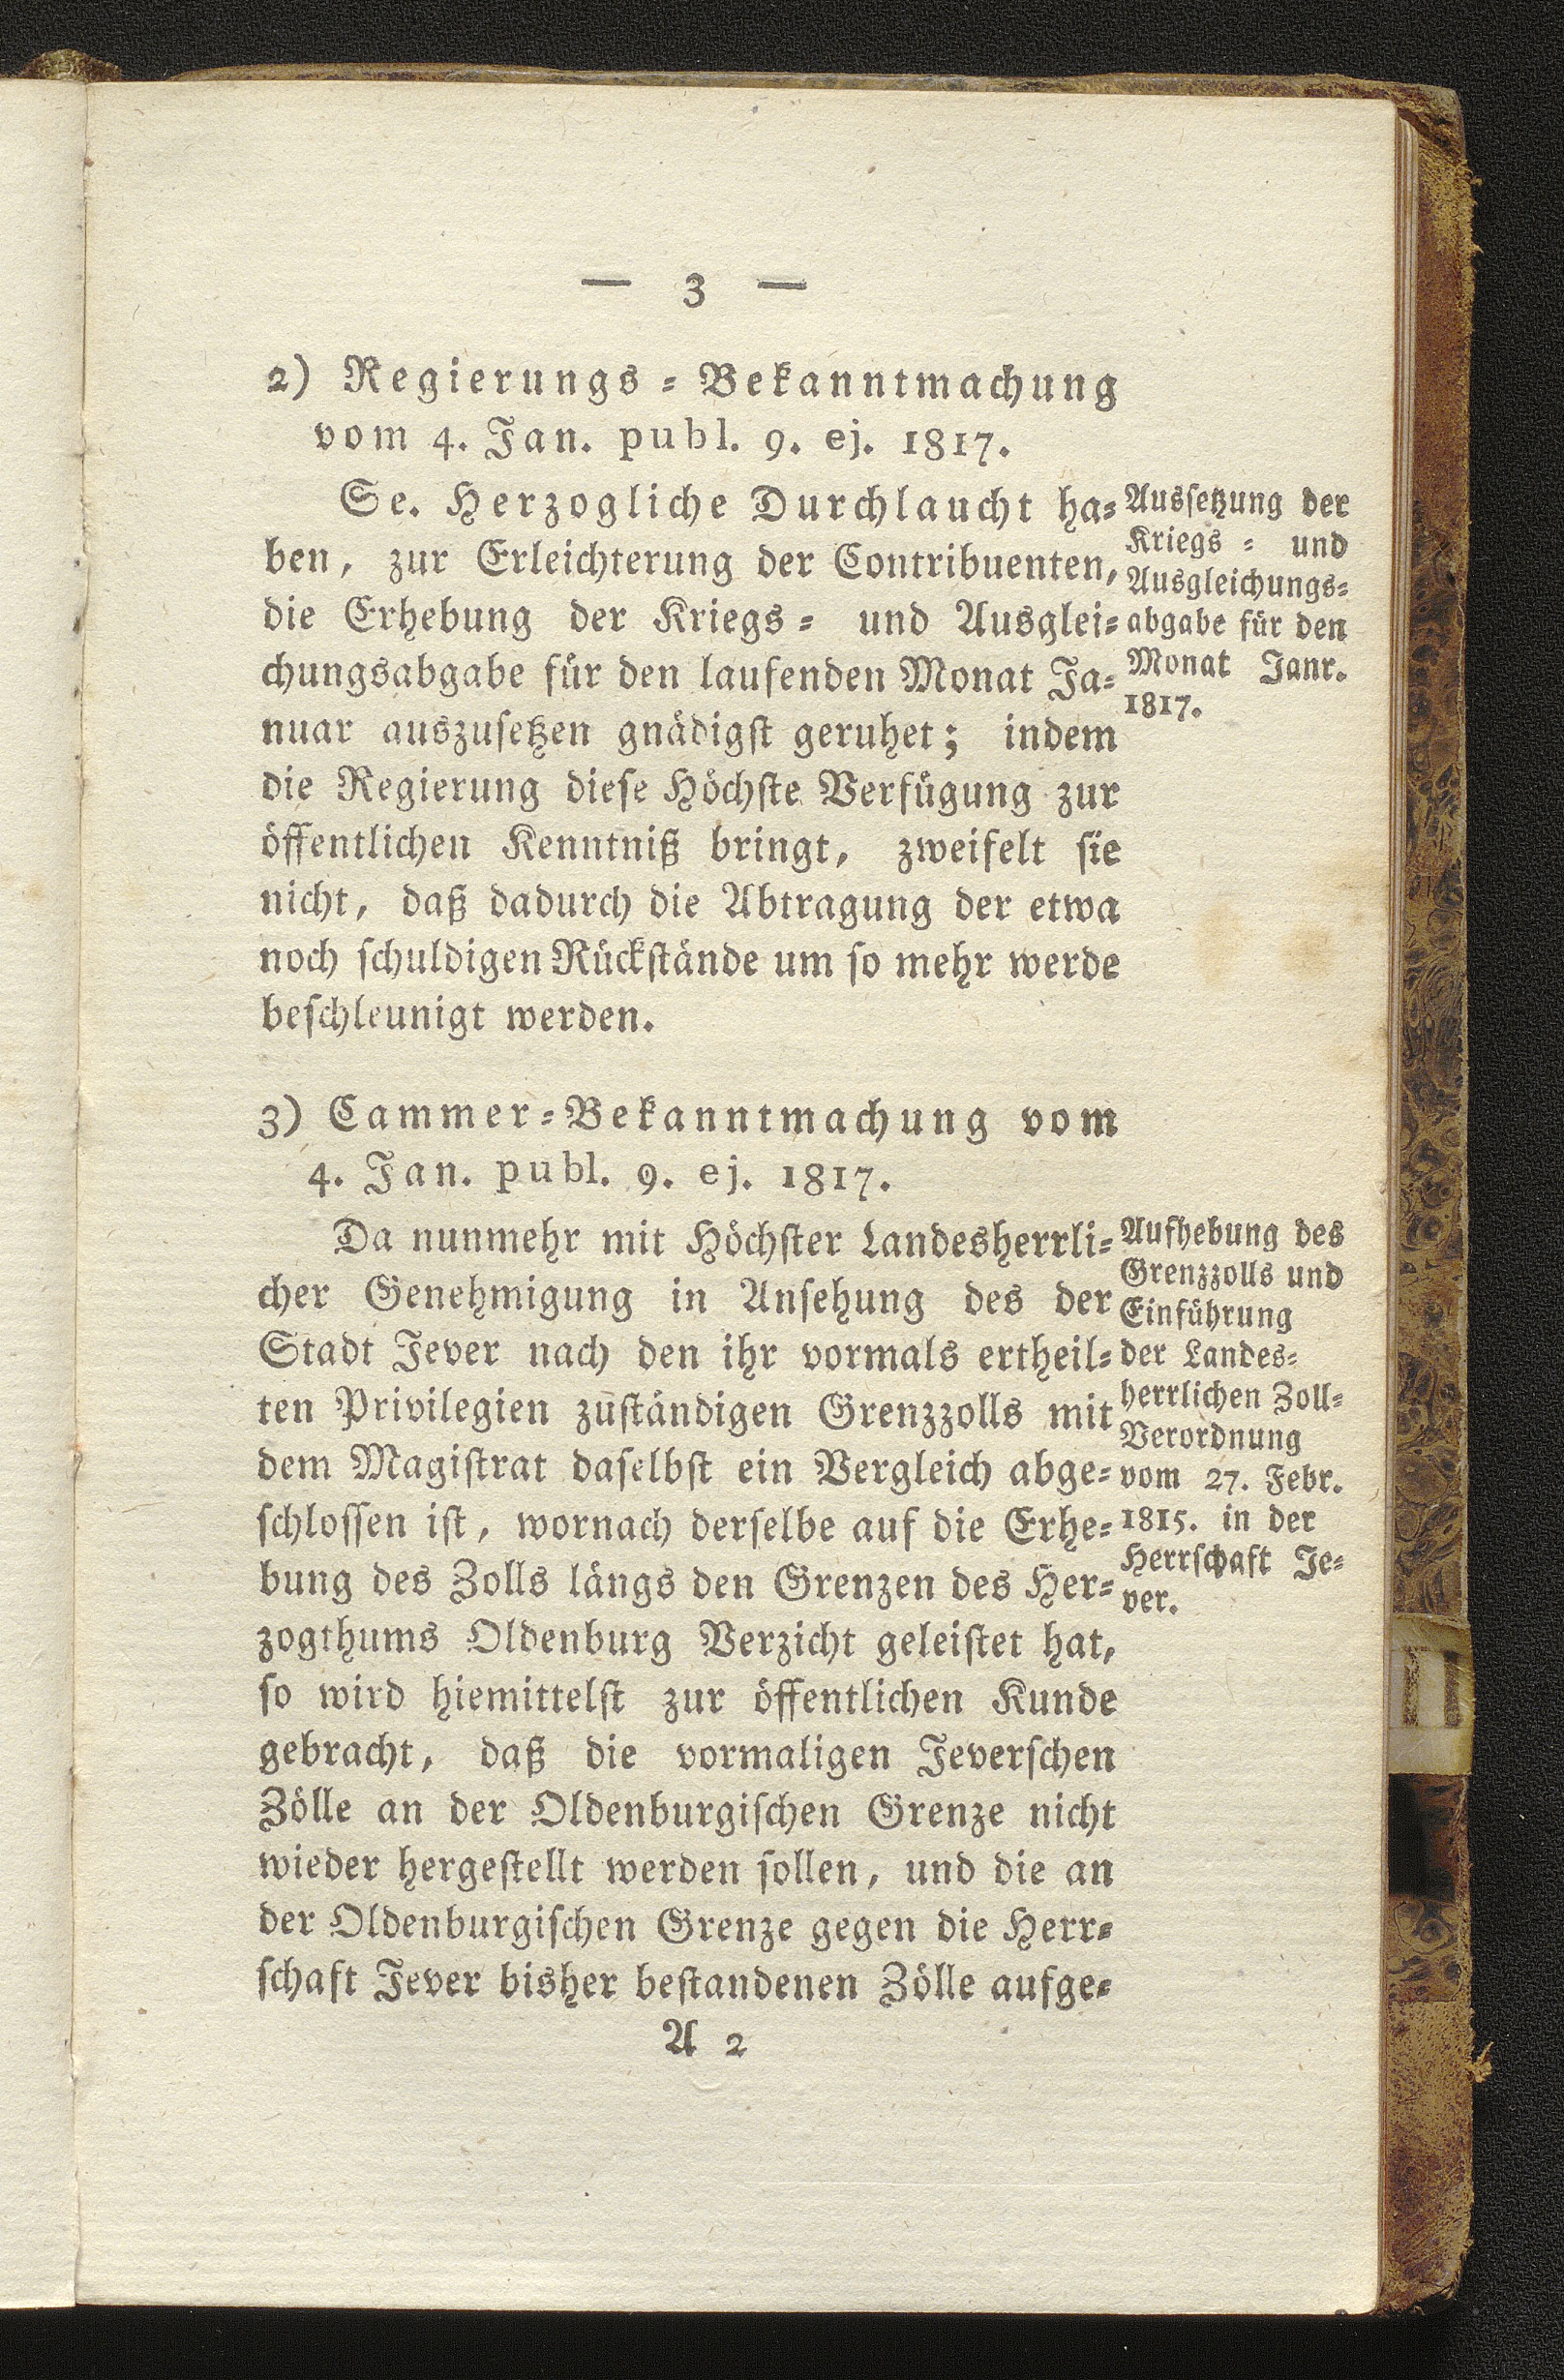 — 3 —
2) Regierungs-Bekanntmachung
vom 4. Jan. publ. 9. ej. 1817.
Se. Herzogliche Durchlaucht ha-
ben, zur Erleichterung der Contribuenten,
die Erhebung der Kriegs- und Ausglei-
chungsabgabe für den laufenden Monat Ja-
nuar auszusetzen gnädigst geruhet; indem
die Regierung diese Höchste Verfügung zur
öffentlichen Kenntniß bringt, zweifelt sie
nicht, daß dadurch die Abtragung der etwa
noch schuldigen Rückstände um so mehr werde
beschleunigt werden.
Aussetzung der
Kriegs- und
Ausgleichungs-
abgabe für den
Monat Janr.
1817.
3) Cammer-Bekanntmachung vom
4. Jan. publ. 9. ej. 1817.
Da nunmehr mit Höchster Landesherrli-
cher Genehmigung in Ansehung des der
Stadt Jever nach den ihr vormals ertheil-
ten Privilegien zuständigen Grenzzolls mit
dem Magistrat daselbst ein Vergleich abge-
schlossen ist, wornach derselbe auf die Erhe-
bung des Zolls längs den Grenzen des Her-
zogthums Oldenburg Verzicht geleistet hat,
so wird hiemittelst zur öffentlichen Kunde
gebracht, daß die vormaligen Jeverschen
Zölle an der Oldenburgischen Grenze nicht
wieder hergestellt werden sollen, und die an
der Oldenburgischen Grenze gegen die Herr-
schaft Jever bisher bestandenen Zölle aufge-
Aufhebung des
Grenzzolls und
Einführung
der Landes-
herrlichen Zoll-
Verordnung
vom 27. Febr.
1815. in der
Herrschaft Je-
ver.
A 2